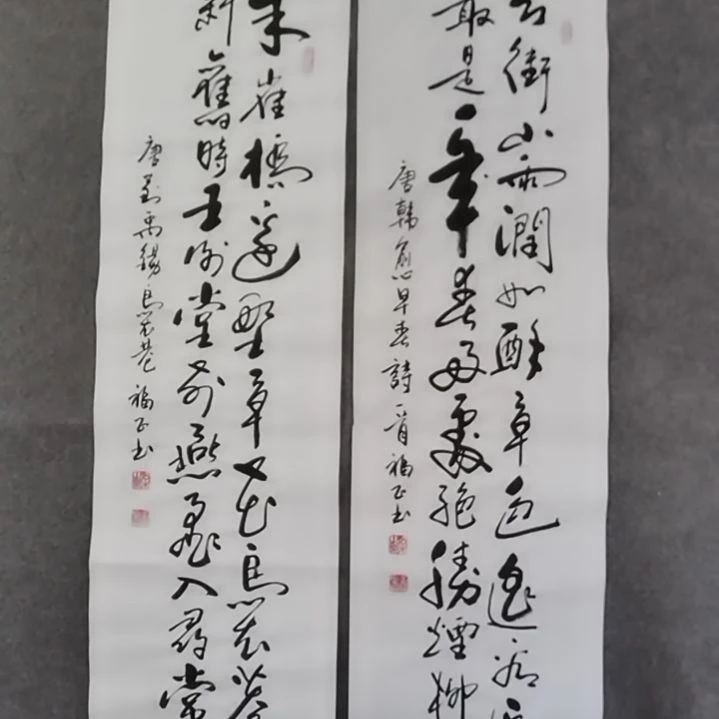 天街小雨潤如酥草色遙看
最是一年春好處絕勝煙柳
唐韓愈早春詩一首福正书
朱雀橋邊野草花烏衣巷
斜舊時王謝堂前燕飛入尋常
唐劉禹錫烏衣巷福正书